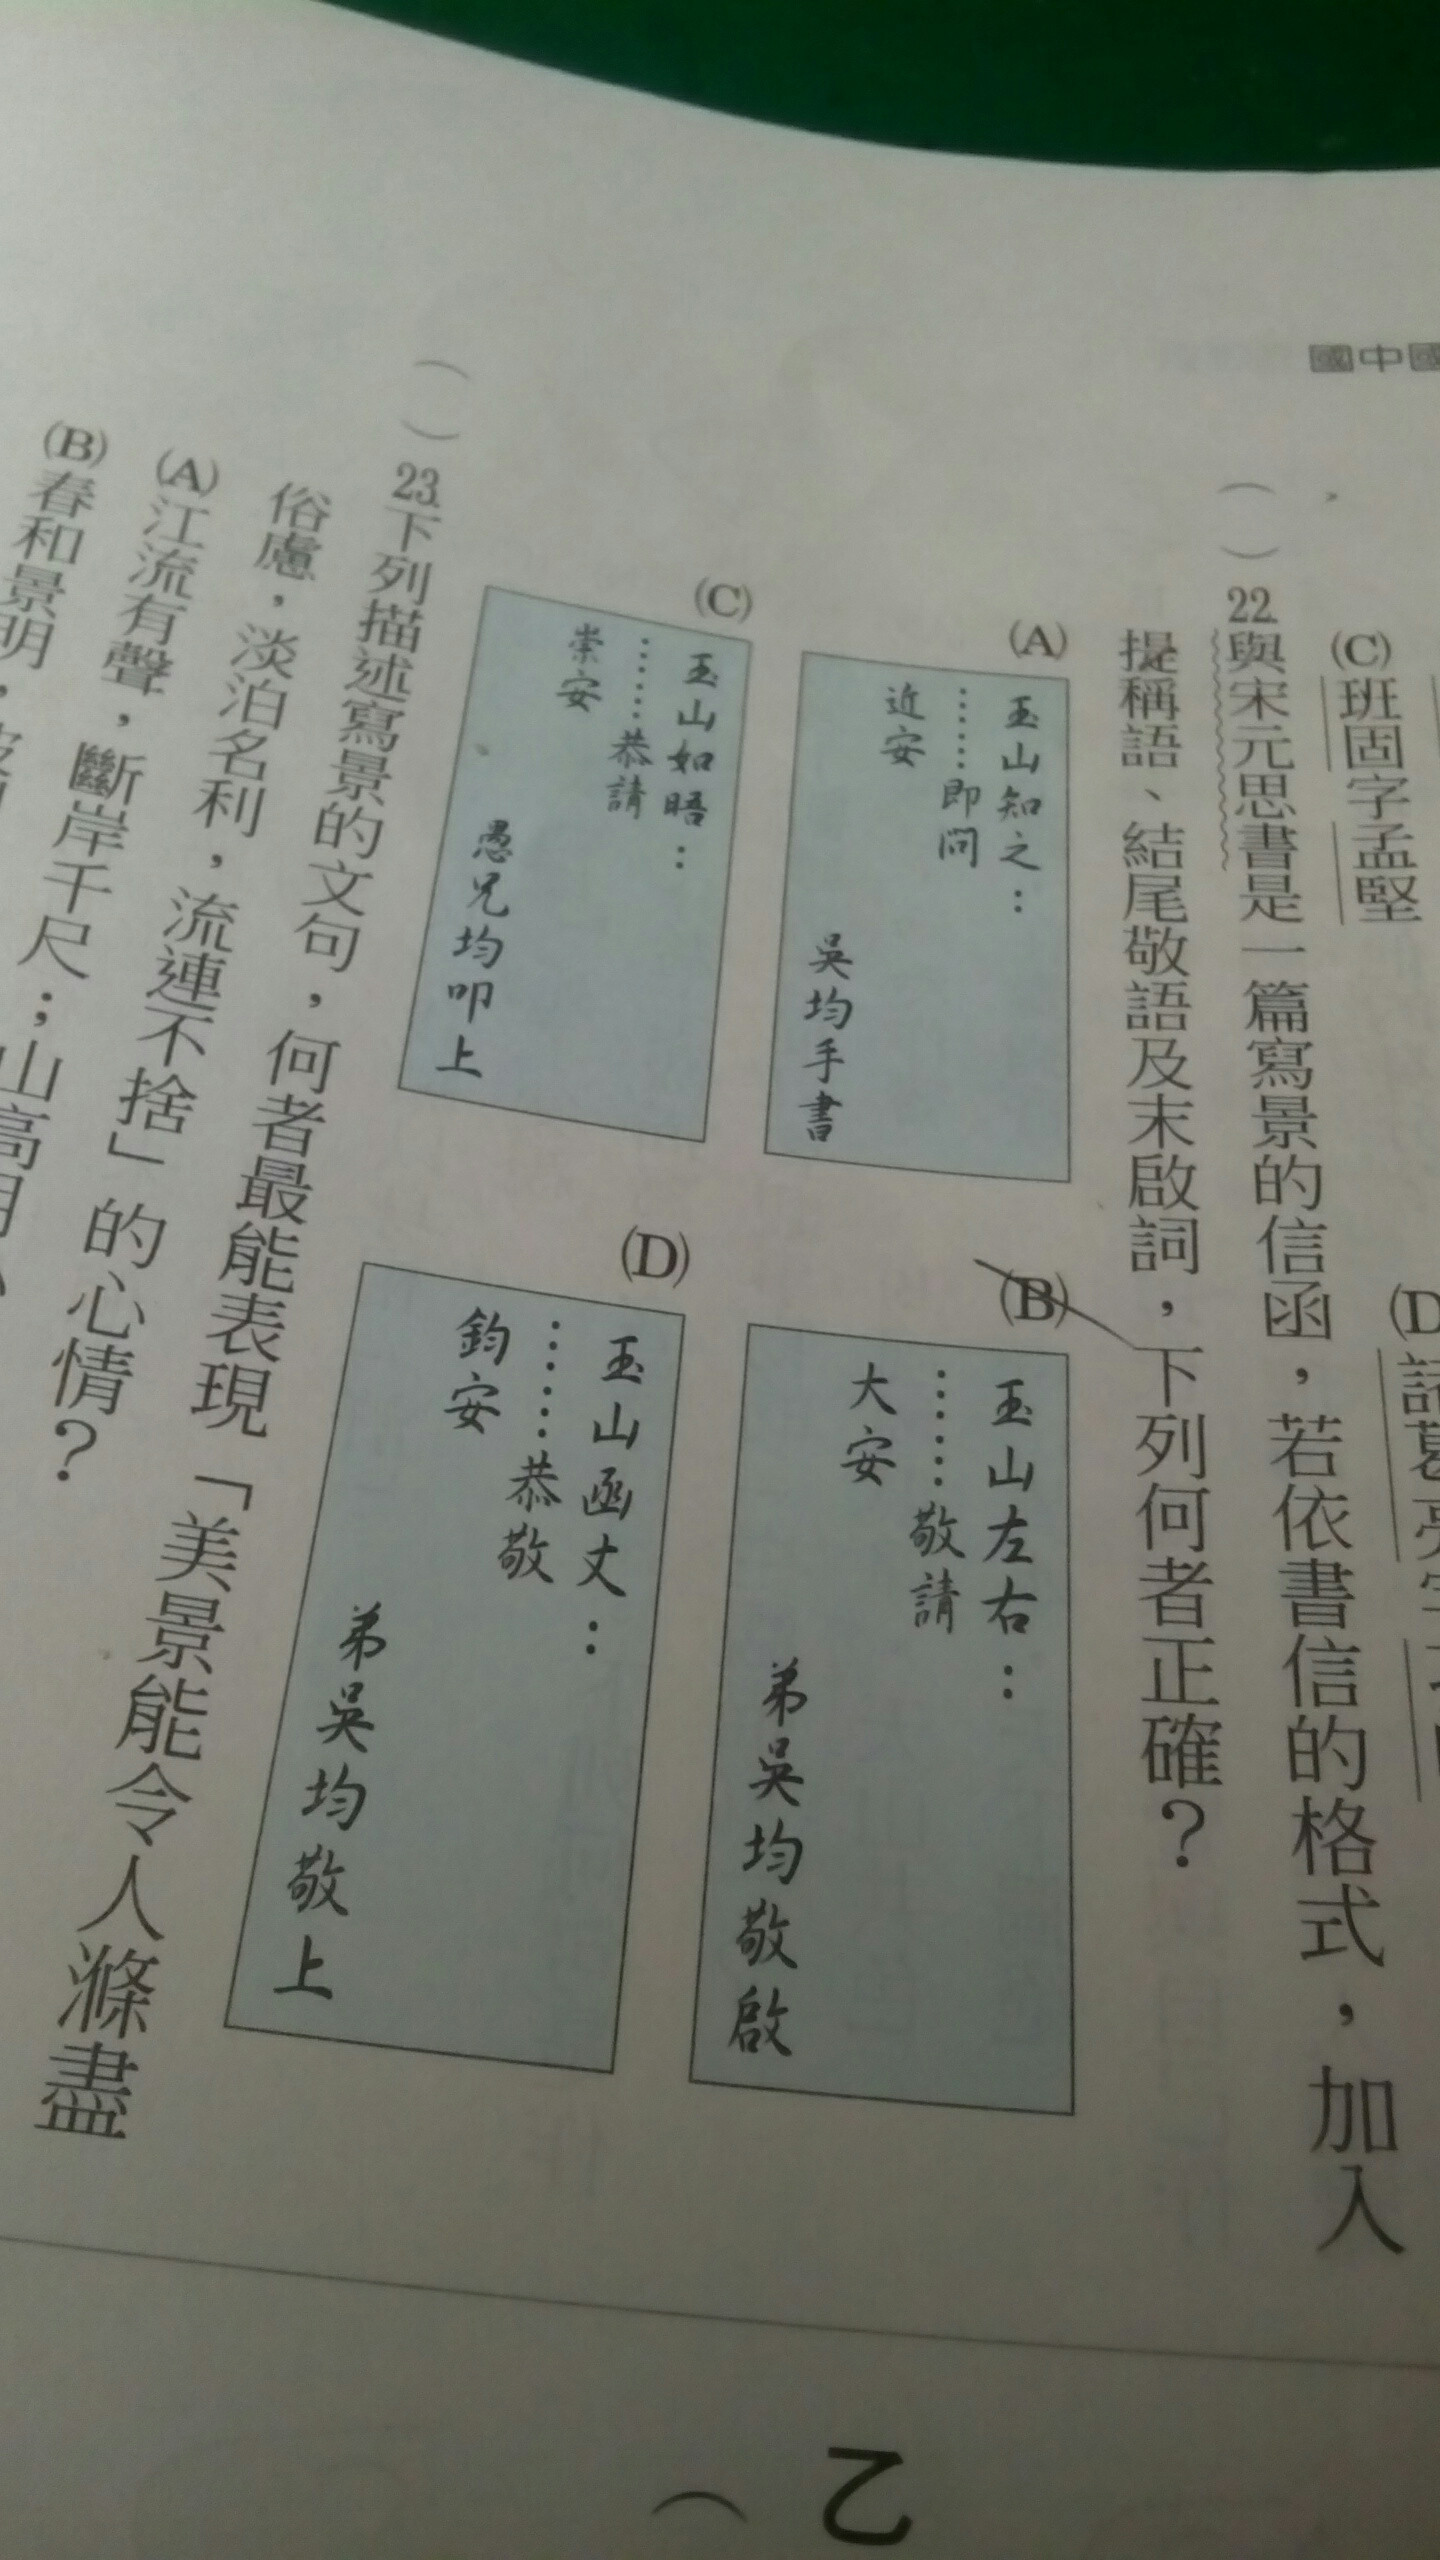 國中國
(C)班固字孟堅
( )22.與宋元思書是一篇寫景的信函，若依書信的格式，加入
提稱語、結尾敬語及末啟詞，下列何者正確？
(A)
玉山知之：
……即問
近安
吳均手書
(B)
玉山左右：
……敬請
大安
弟吳均敬啟
(C)
玉山如晤：
……恭請
崇安
愚兄均叩上
(D)
玉山函丈：
……恭敬
鈞安
弟吳均敬上
( )23.下列描述寫景的文句，何者最能表現「美景能令人滌盡
俗慮，淡泊名利，流連不捨」的心情？
(A)江流有聲，斷岸千尺；山高月小
(B)春和景明，波
乙（